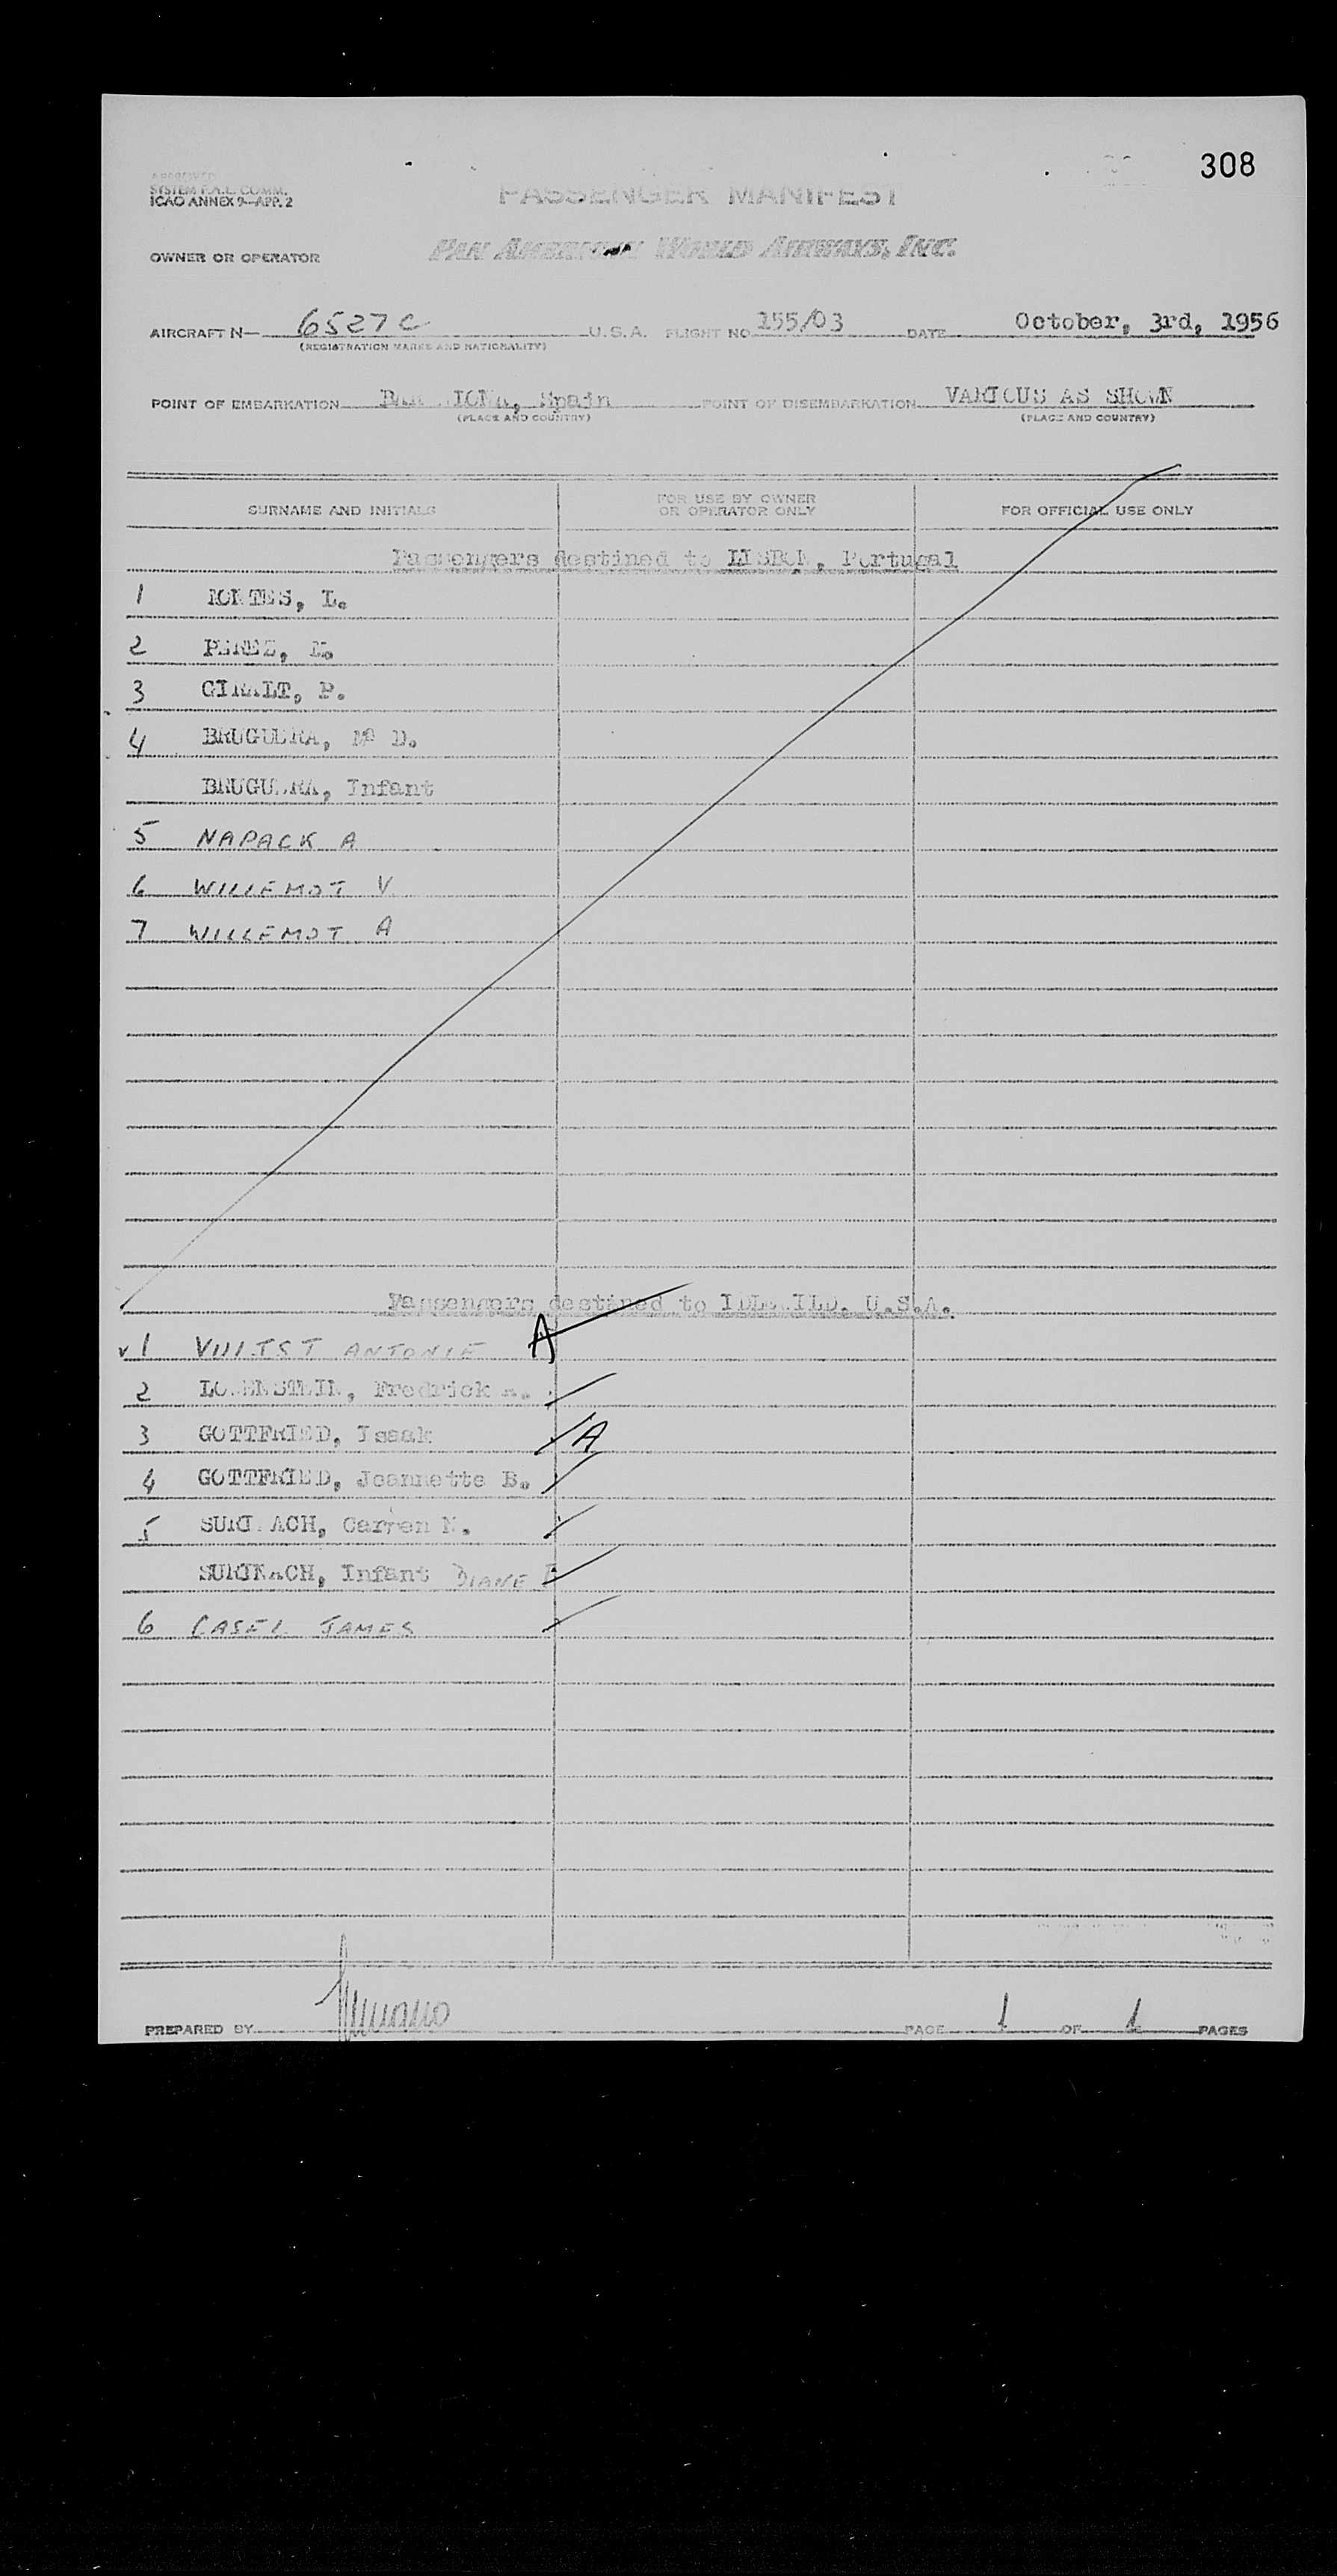 308
APPROVED
SYSTEM F.A.L. COMM.
ICAO ANNEX 9—APP. 2
PASSENGER MANIFEST
OWNER OR OPERATOR PAN AMERICAN WORLD AIRWAYS, INC.
AIRCRAFT N— 6527C U.S.A. FLIGHT NO 155/03 DATE October, 3rd, 1956
(REGISTRATION MARKS AND NATIONALITY)
POINT OF EMBARKATION BARCELONA, Spain POINT OF DISEMBARKATION VARIOUS AS SHOWN
(PLACE AND COUNTRY) (PLACE AND COUNTRY)
SURNAME AND INITIALS FOR USE BY OWNER OR OPERATOR ONLY FOR OFFICIAL USE ONLY
Passengers destined to LISBON, Portugal
1 MONTES, L.
2 PEREZ,
3 GIRALT, P.
4 BRUGUERA, Mª D.
BRUGUERA, Infant
5 NAPACK A
6 WILLEMOT V.
7 WILLEMOT A
Passengers destined to IDLEWILD, U.S.A.
v 1 ANTONIE A
2 LOWENSTEIN, Fredrick
3 GOTTFRIED, Isaak A
4 GOTTFRIED, Jeannette B.
5 SURINACH, Carmen M.
SURINACH, Infant DIANE
6 CASEL JAMES
PREPARED BY PAGE 1 OF 1 PAGES